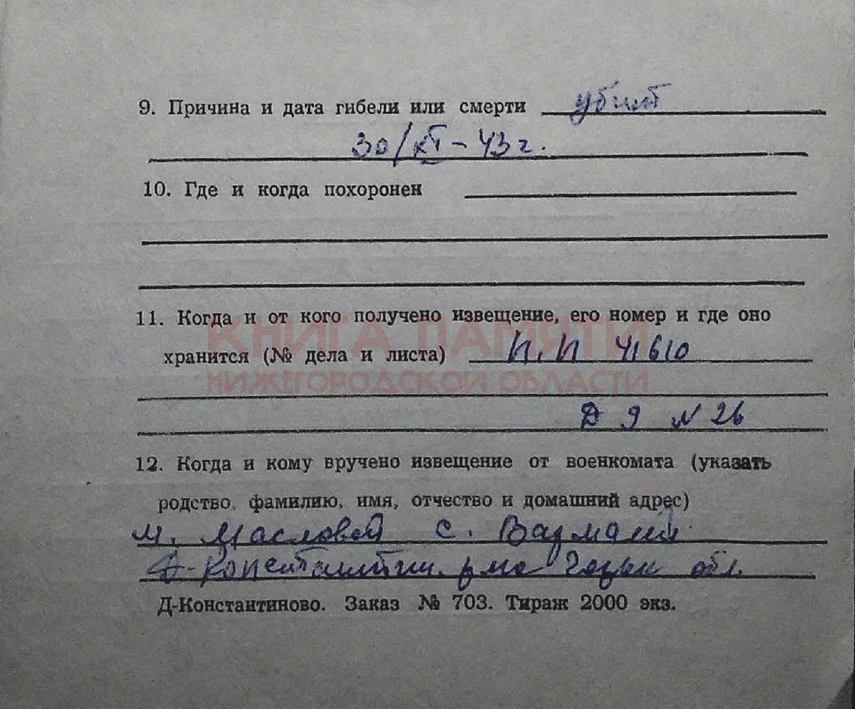 9. Причина и дата гибели или смерти убит
30/XI-43 г.
10. Где и когда похоронен
11. Когда и от кого получено извещение, его номер и где оно
КНИГА ПАМЯТИ
хранится (№ дела и листа) п. п 41610
НИЖЕГОРОДСКОЙ ОБЛАСТИ
Д 9 N 26
12. Когда и кому вручено извещение от военкомата (указать
родство, фамилию, имя, отчество и домашний адрес)
м. Масловой с.
Д-Константин. р-на обл.
Д-Константиново. Заказ № 703. Тираж 2000 экз.